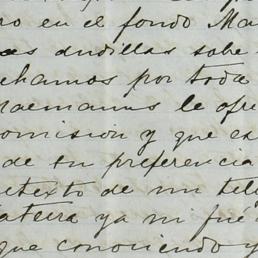 ro en el fondo Ma
as dudillas sobe
chamos por toda
raemanus le ofre
omision y que es
de su preferencia
utexto de un tele
ateira ya ni fué
que conociendo y